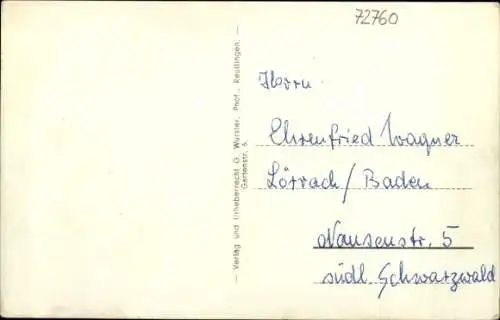 72760
Herrn
Ehrenfried Wagner
Lörrach/Baden
Nansenstr. 5
südl. Schwarzwald
— Verlag und Urheberrecht G. Wurster, Phot., Reutlingen. —
Gartenstr. 6.